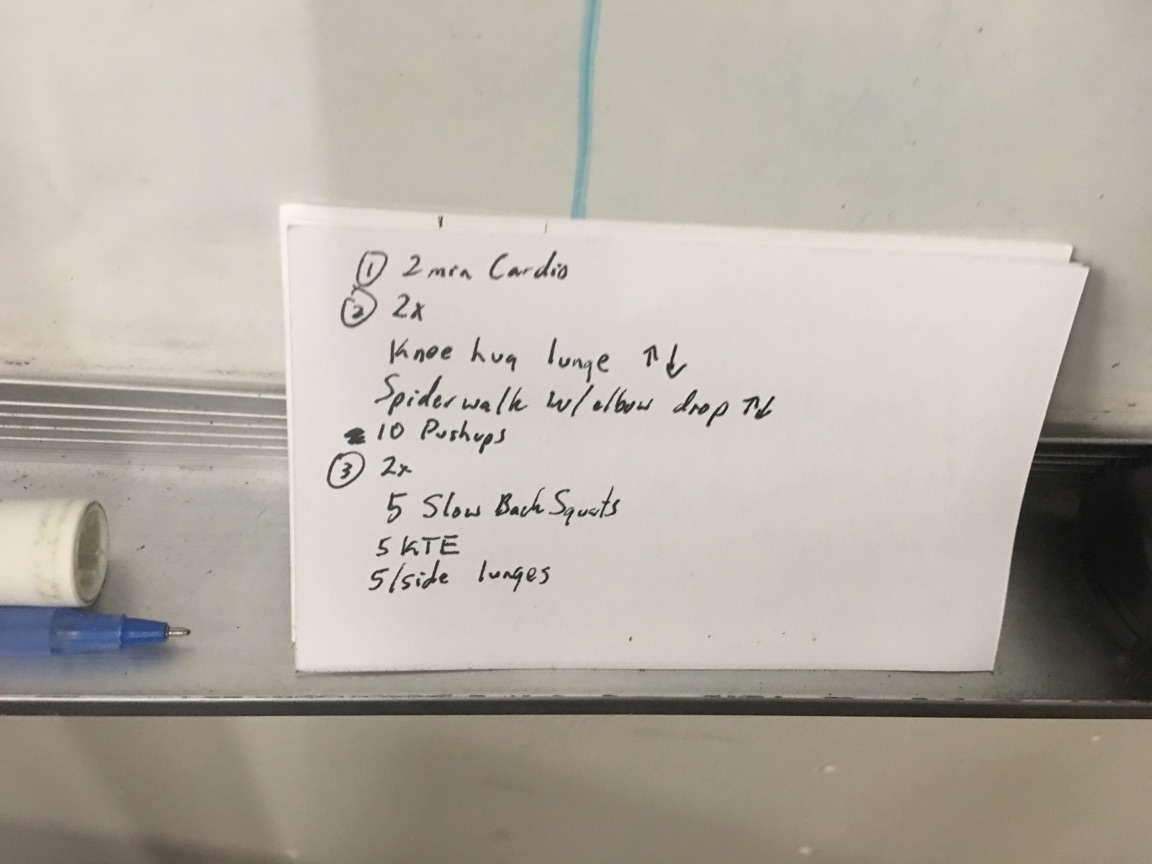 ① 2 min Cardio
② 2x
Knee hug lunge ↑↓
Spiderwalk w/elbow drop ↑↓
10 Pushups
③ 2x
5 Slow Back Squats
5 KTE
5/side lunges